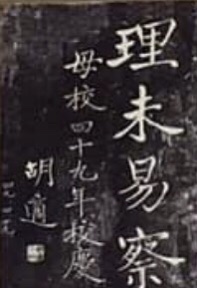 理未易察
母校四十九年校慶
胡適